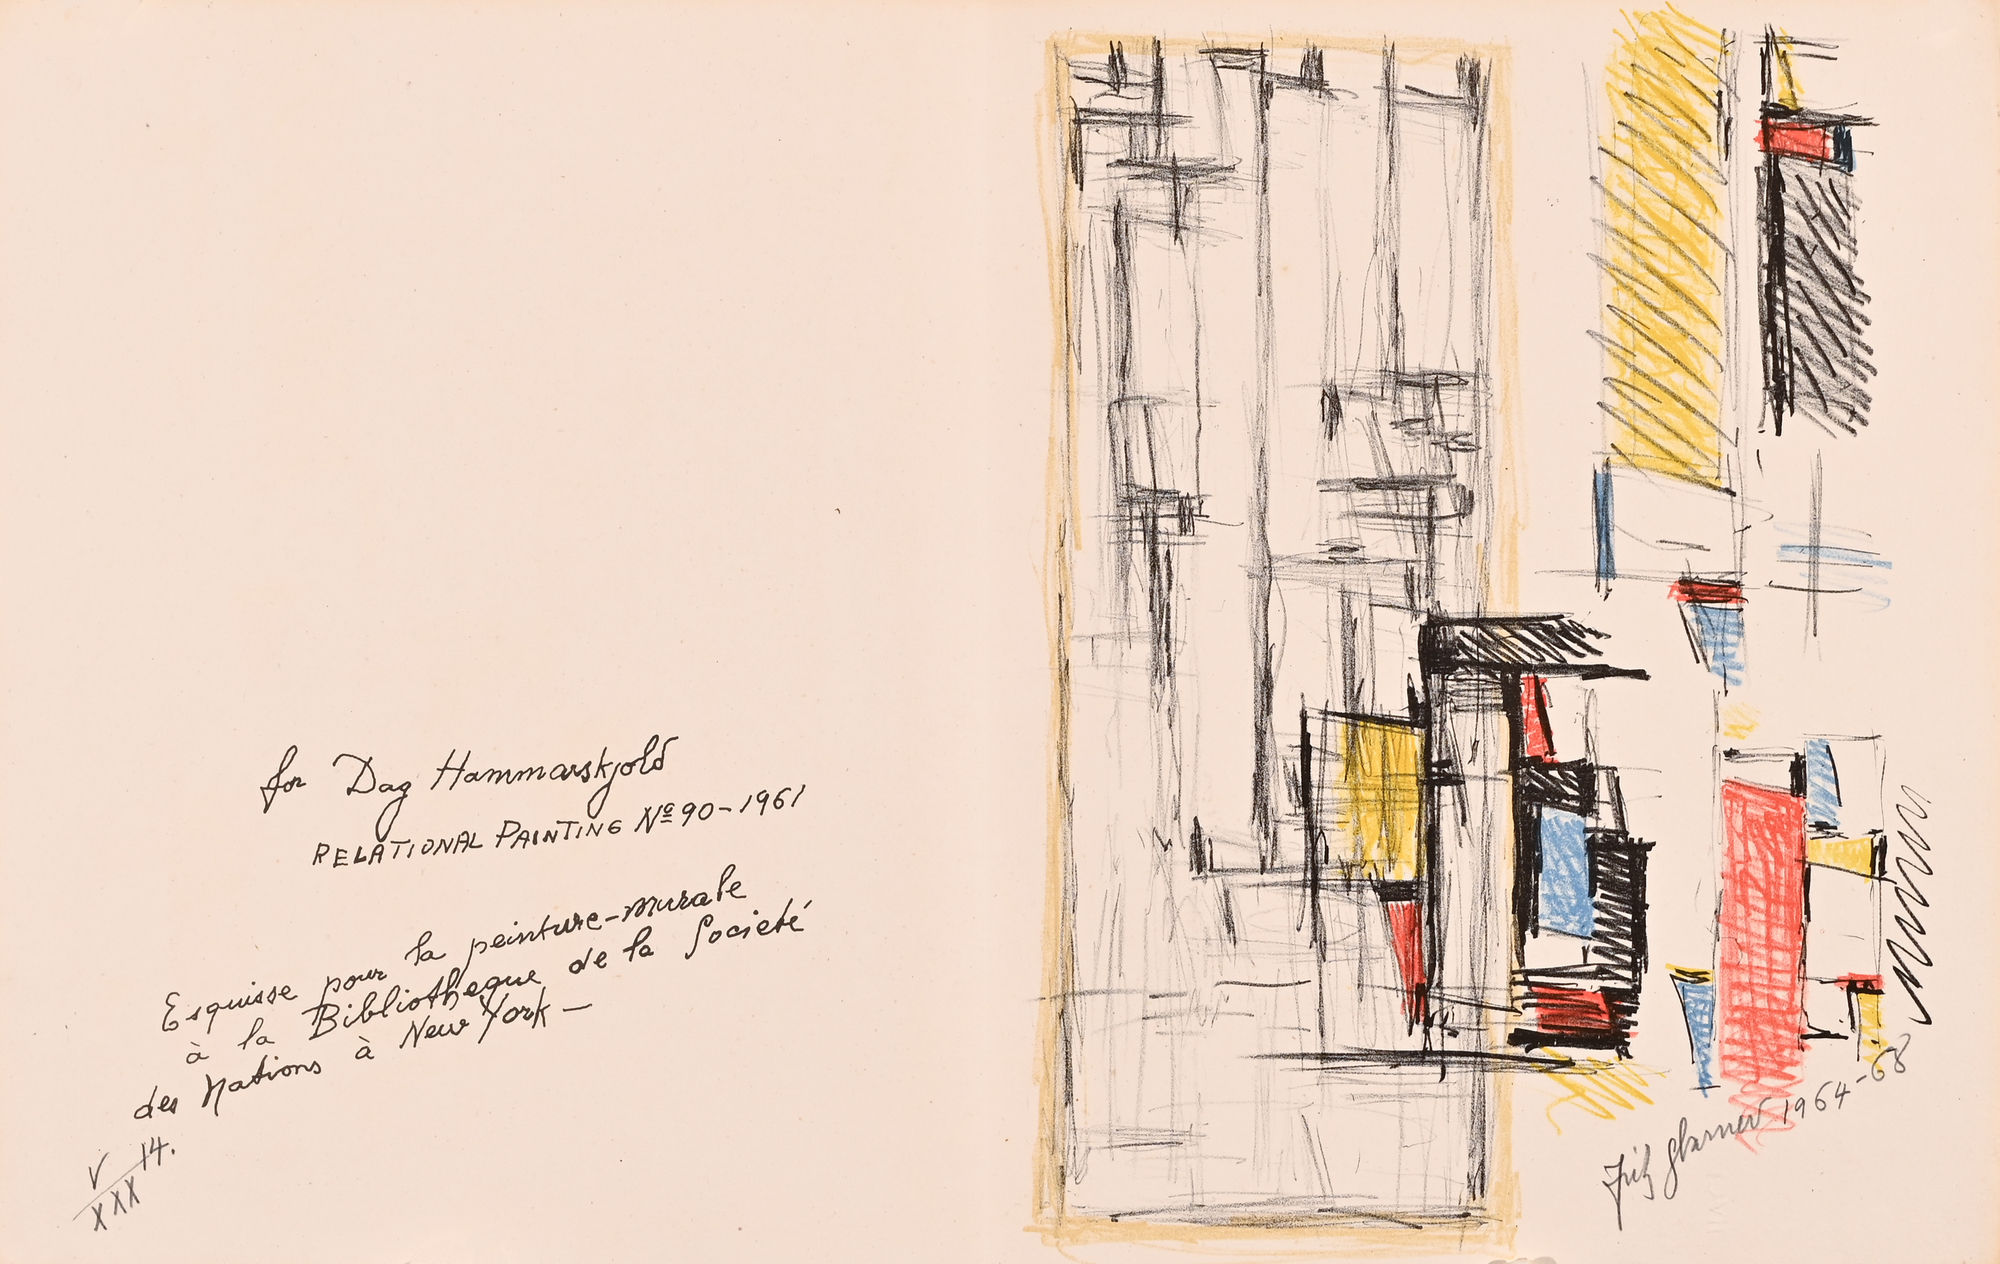 for Dag Hammarskjold
RELATIONAL PAINTING Nº 90-1961
Esquisse pour la peinture-murale
à la Bibliothèque de la Societé
des Nations à New York—
V/XXX 14.
Fritz Glarner 1964-68